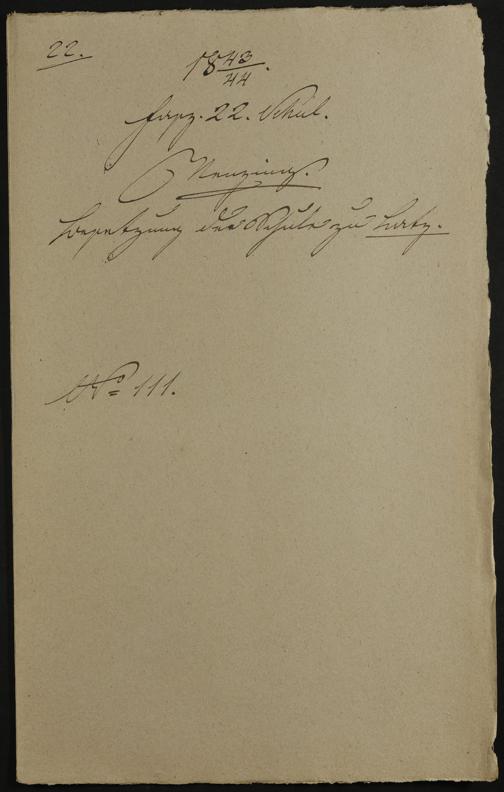 22.
18 43/44.
Fasz. 22. Schul.
Nenzing.
Besetzung der Schule zu Latz.
No 111.